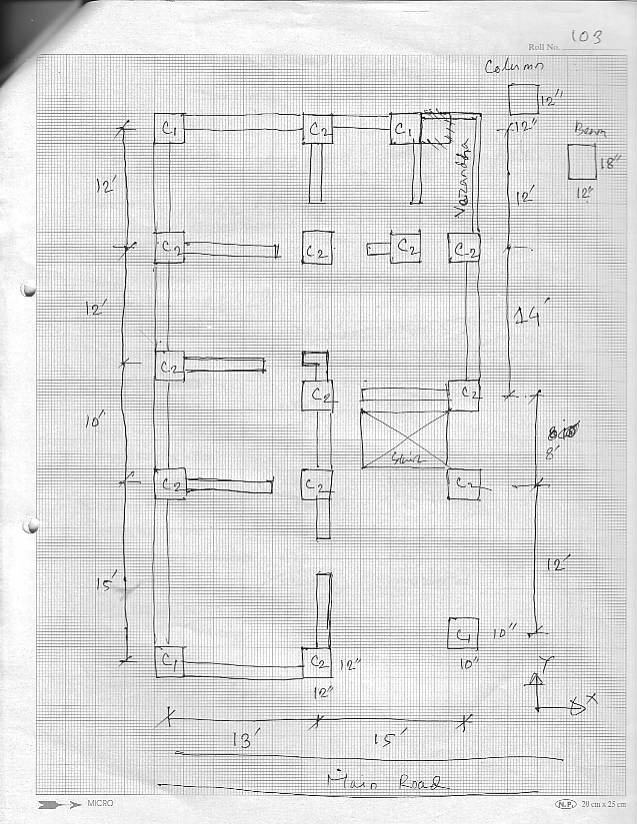 Roll No. 103
Column
12"
12"
Beam
18"
12"
C1 C2 C1
Varandha
12' 12'
C2 C2 C2 C2
12' 14'
C2 C2 C2
10' 8'
Stair
C2 C2 C2
12'
15'
C1 10"
10"
C1 C2 12"
12"
Y
X
13' 15'
Main Road
MICRO N.P. 20 cm x 25 cm